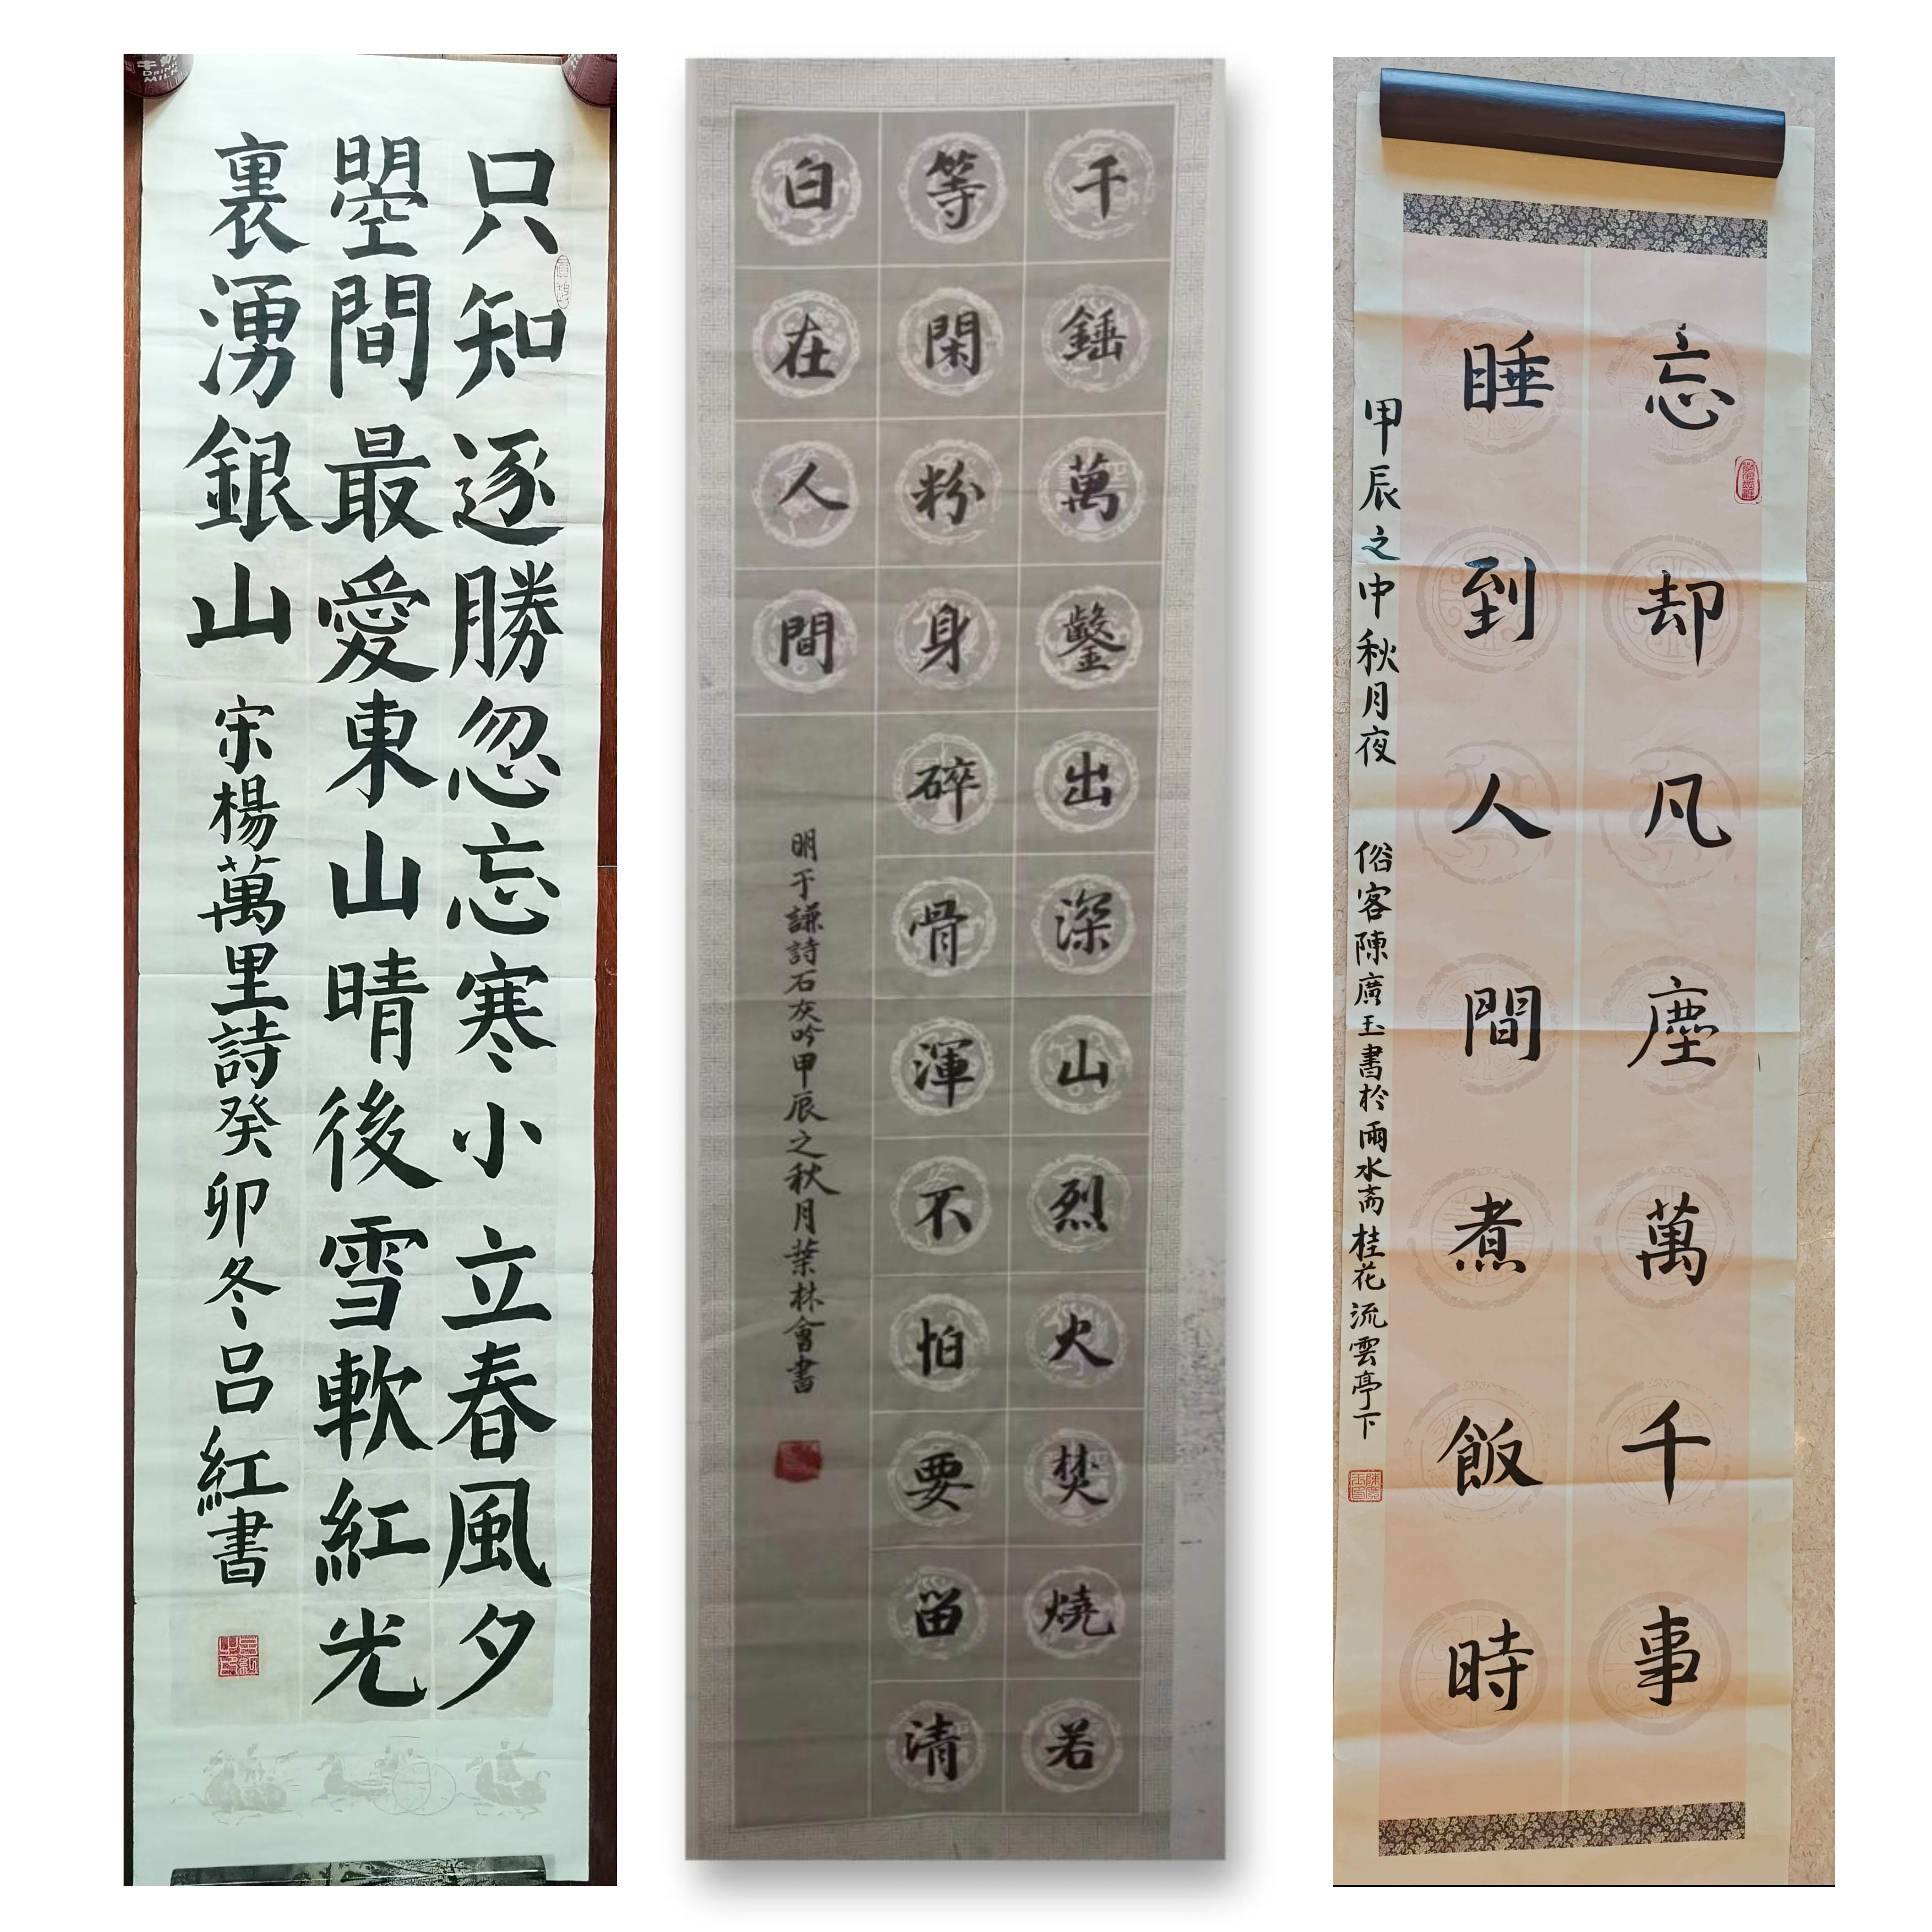 只知逐勝忽忘寒小立春風夕
曌間最愛東山晴後雪軟紅光
裏湧銀山 宋楊萬里詩癸卯冬吕紅書
DRINK
MILK
千錘萬鑿出深山烈火焚燒若
等閑粉身碎骨渾不怕要留清
白在人間
明于謙詩石灰吟甲辰之秋月葉林會書
忘却凡塵萬千事
睡到人間煮飯時
甲辰之中秋月夜 俗客陳廣玉書於雨水斋桂花流雲亭下